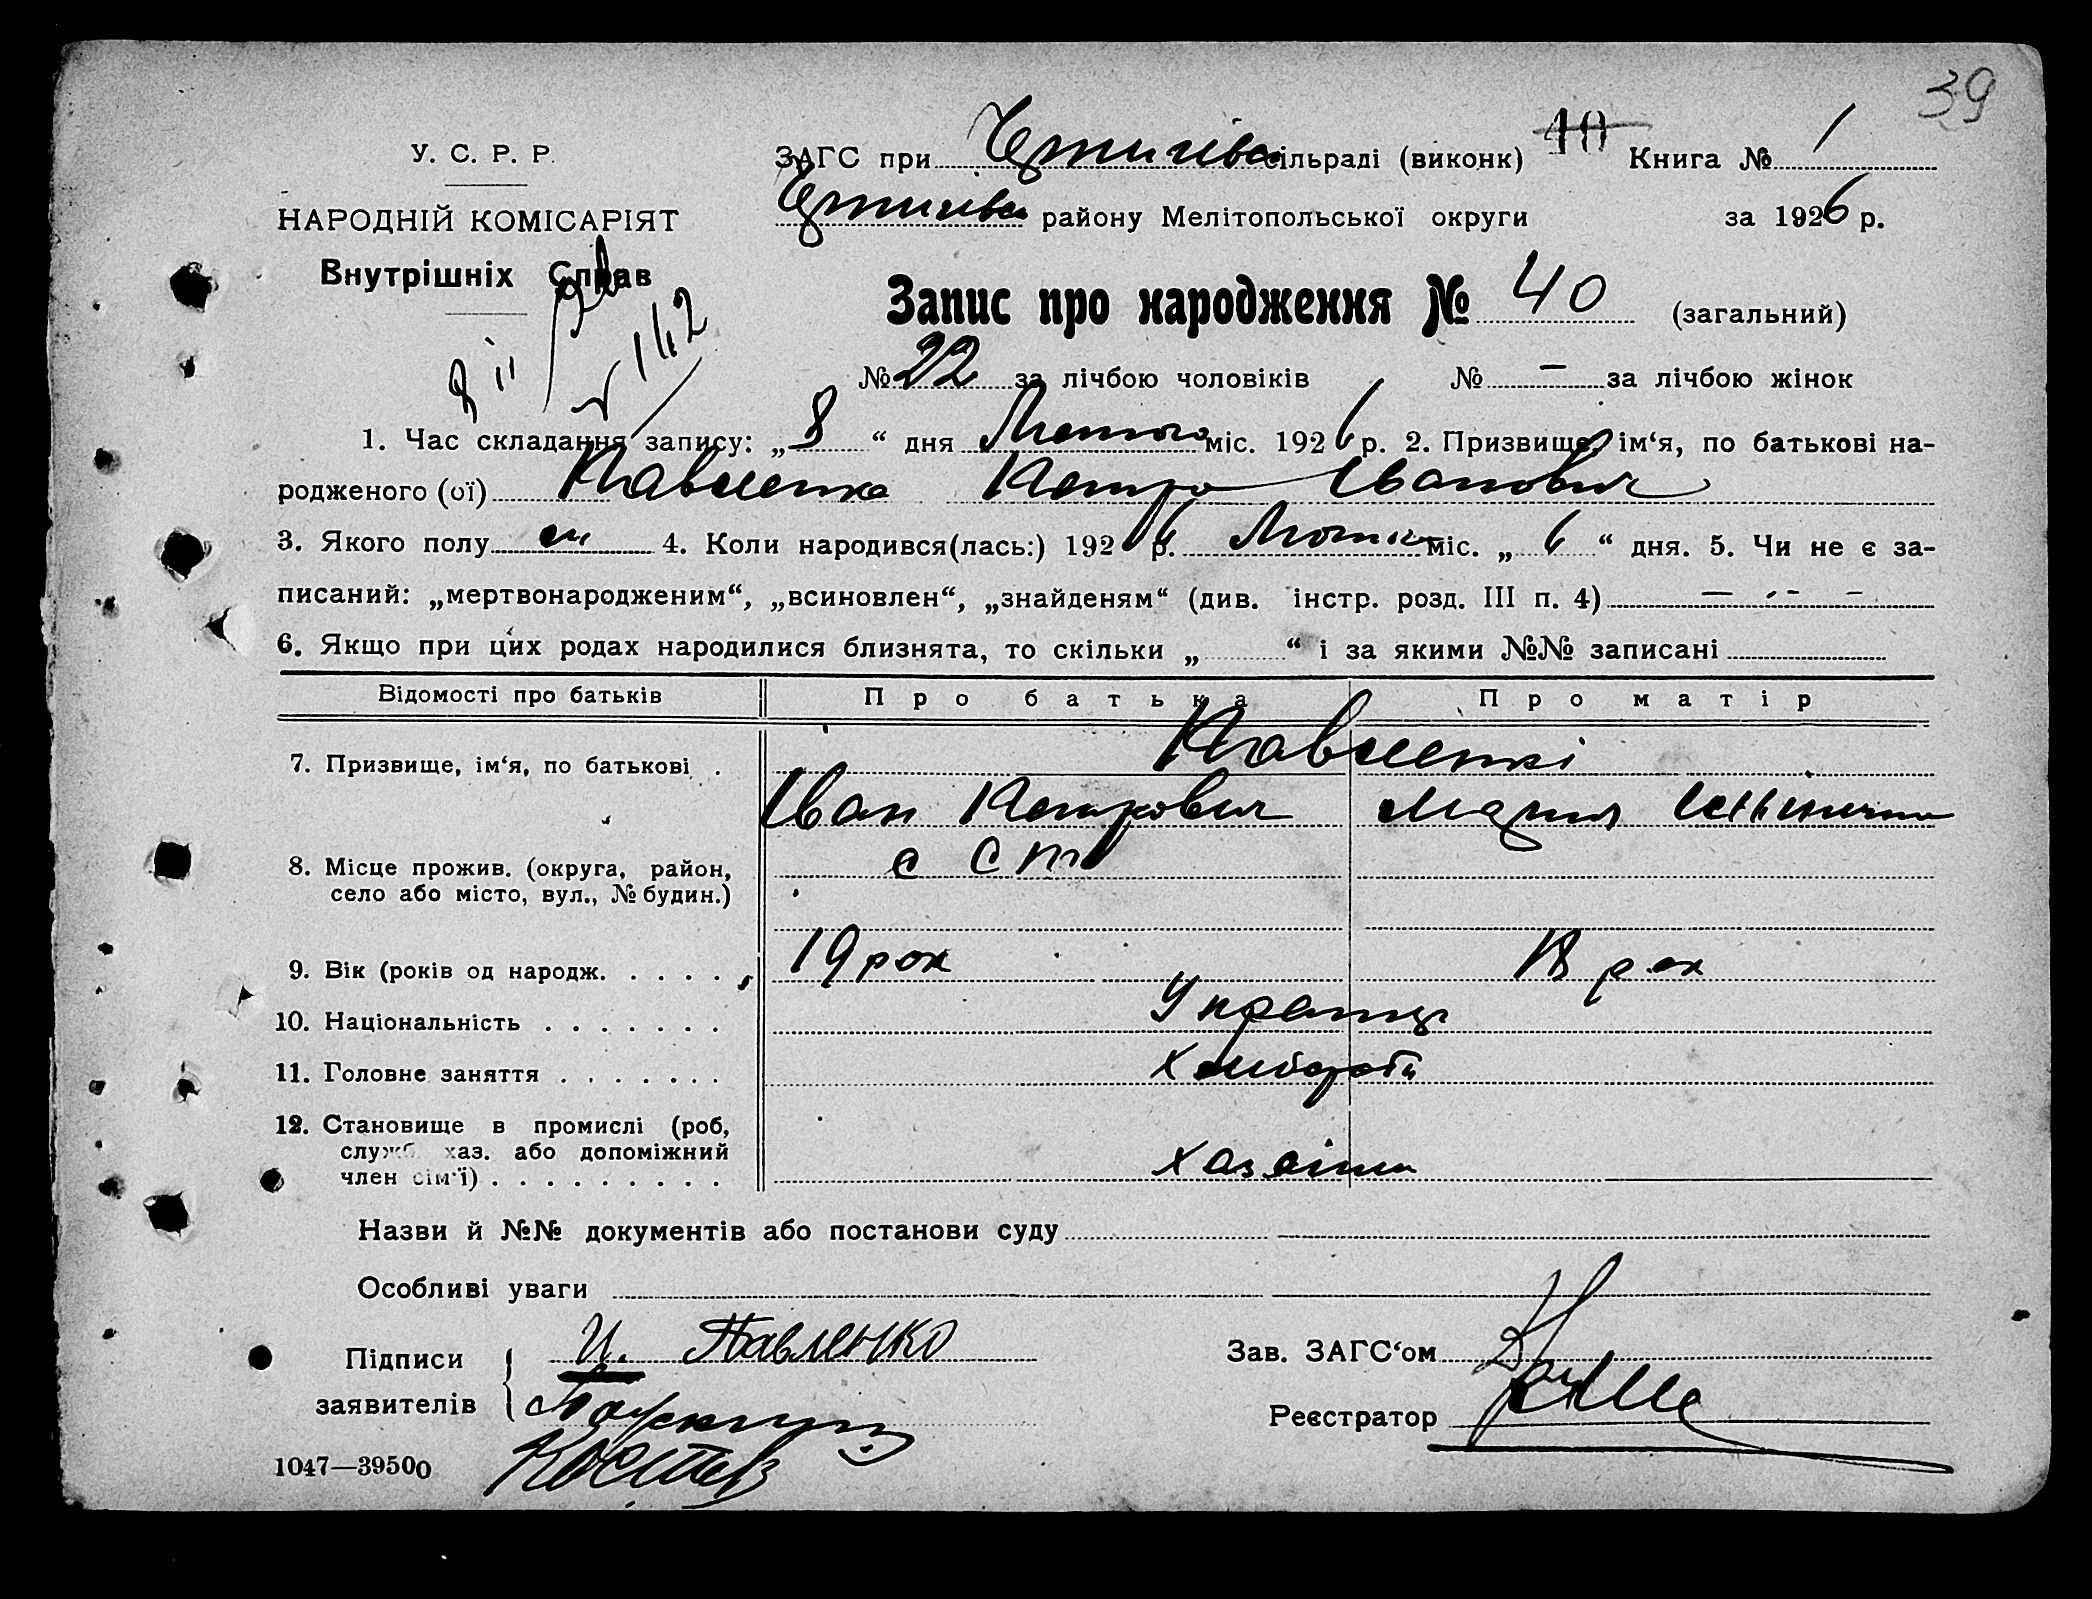 39
У. С. Р. Р.
ЗАГС при сільраді (виконк) 40 Книга № 1
НАРОДНІЙ КОМІСАРІЯТ
району Мелітопольської округи за 1926 р.
Внутрішніх Справ
Запис про народження № 40 (загальний)
№ 22 за лічбою чоловіків № — за лічбою жінок
1. Час складання запису: „8“ дня Лютого міс. 1926 р. 2. Призвище, ім‘я, по батькові на-
родженого (ої) Павленко Петро Іванович
3. Якого полу 4. Коли народився(лась:) 1926 р. міс. „6“ дня. 5. Чи не є за-
писаний: „мертвонародженим“, „всиновлен“, „знайденям“ (див. інстр. розд. III п. 4) — — —
6. Якщо при цих родах народилися близнята, то скільки „ “ і за якими №№ записані
Відомості про батьків Про батька Про матір
7. Призвище, ім‘я, по батькові . Павленкі
Іван Петрович Мария
8. Місце прожив. (округа, район,
село або місто, вул., № будин.)
9. Вік (років од народж. . . . . 19 рок 18 рок
10. Національність . . . . . . . Українці
11. Головне заняття . . . . . . . хлібороби
12. Становище в промислі (роб,
служб. хаз. або допоміжний
член сім‘ї) . . . . . . . . . хазяіни
Назви й №№ документів або постанови суду
Особливі уваги
Підписи И. Павленко Зав. ЗАГС‘ом
заявителів Реєстратор
1047—39500